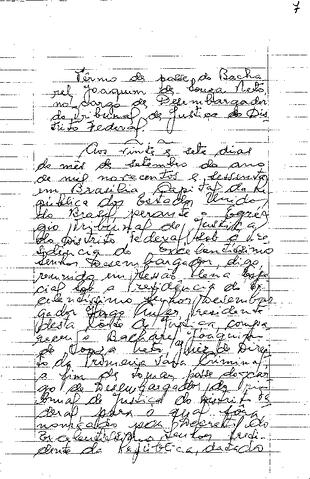 7
Termo de posse do Bacha
rel Joaquim de Sousa Neto
no cargo de Desembargador
do Tribunal de Justiça do Dis
trito Federal.
Aos vinte e sete dias
do mês de setembro do ano
de mil novecentos e sessenta
em Brasília Capital da Re
pública dos Estados Unidos
do Brasil, perante o Egré
gio Tribunal de Justiça
do Distrito Federal, sob a Pre
sidência do Excelentíssimo
Senhor Desembargador, digo,
reunido em sessão plena espe
cial sob a Presidência do Ex
celentíssimo Senhor Desembar
gador Presidente
desta Côrte de Justiça, compa
receu o Bacharel Joaquim
de Sousa Neto, Juiz de Direi
to da Primeira Vara Criminal
a fim de tomar posse do car
go de Desembargador do Tri
bunal de Justiça do Distrito Fe
deral para o qual fôra
nomeado por decreto do
Excelentíssimo Senhor Presi
dente da República, datado